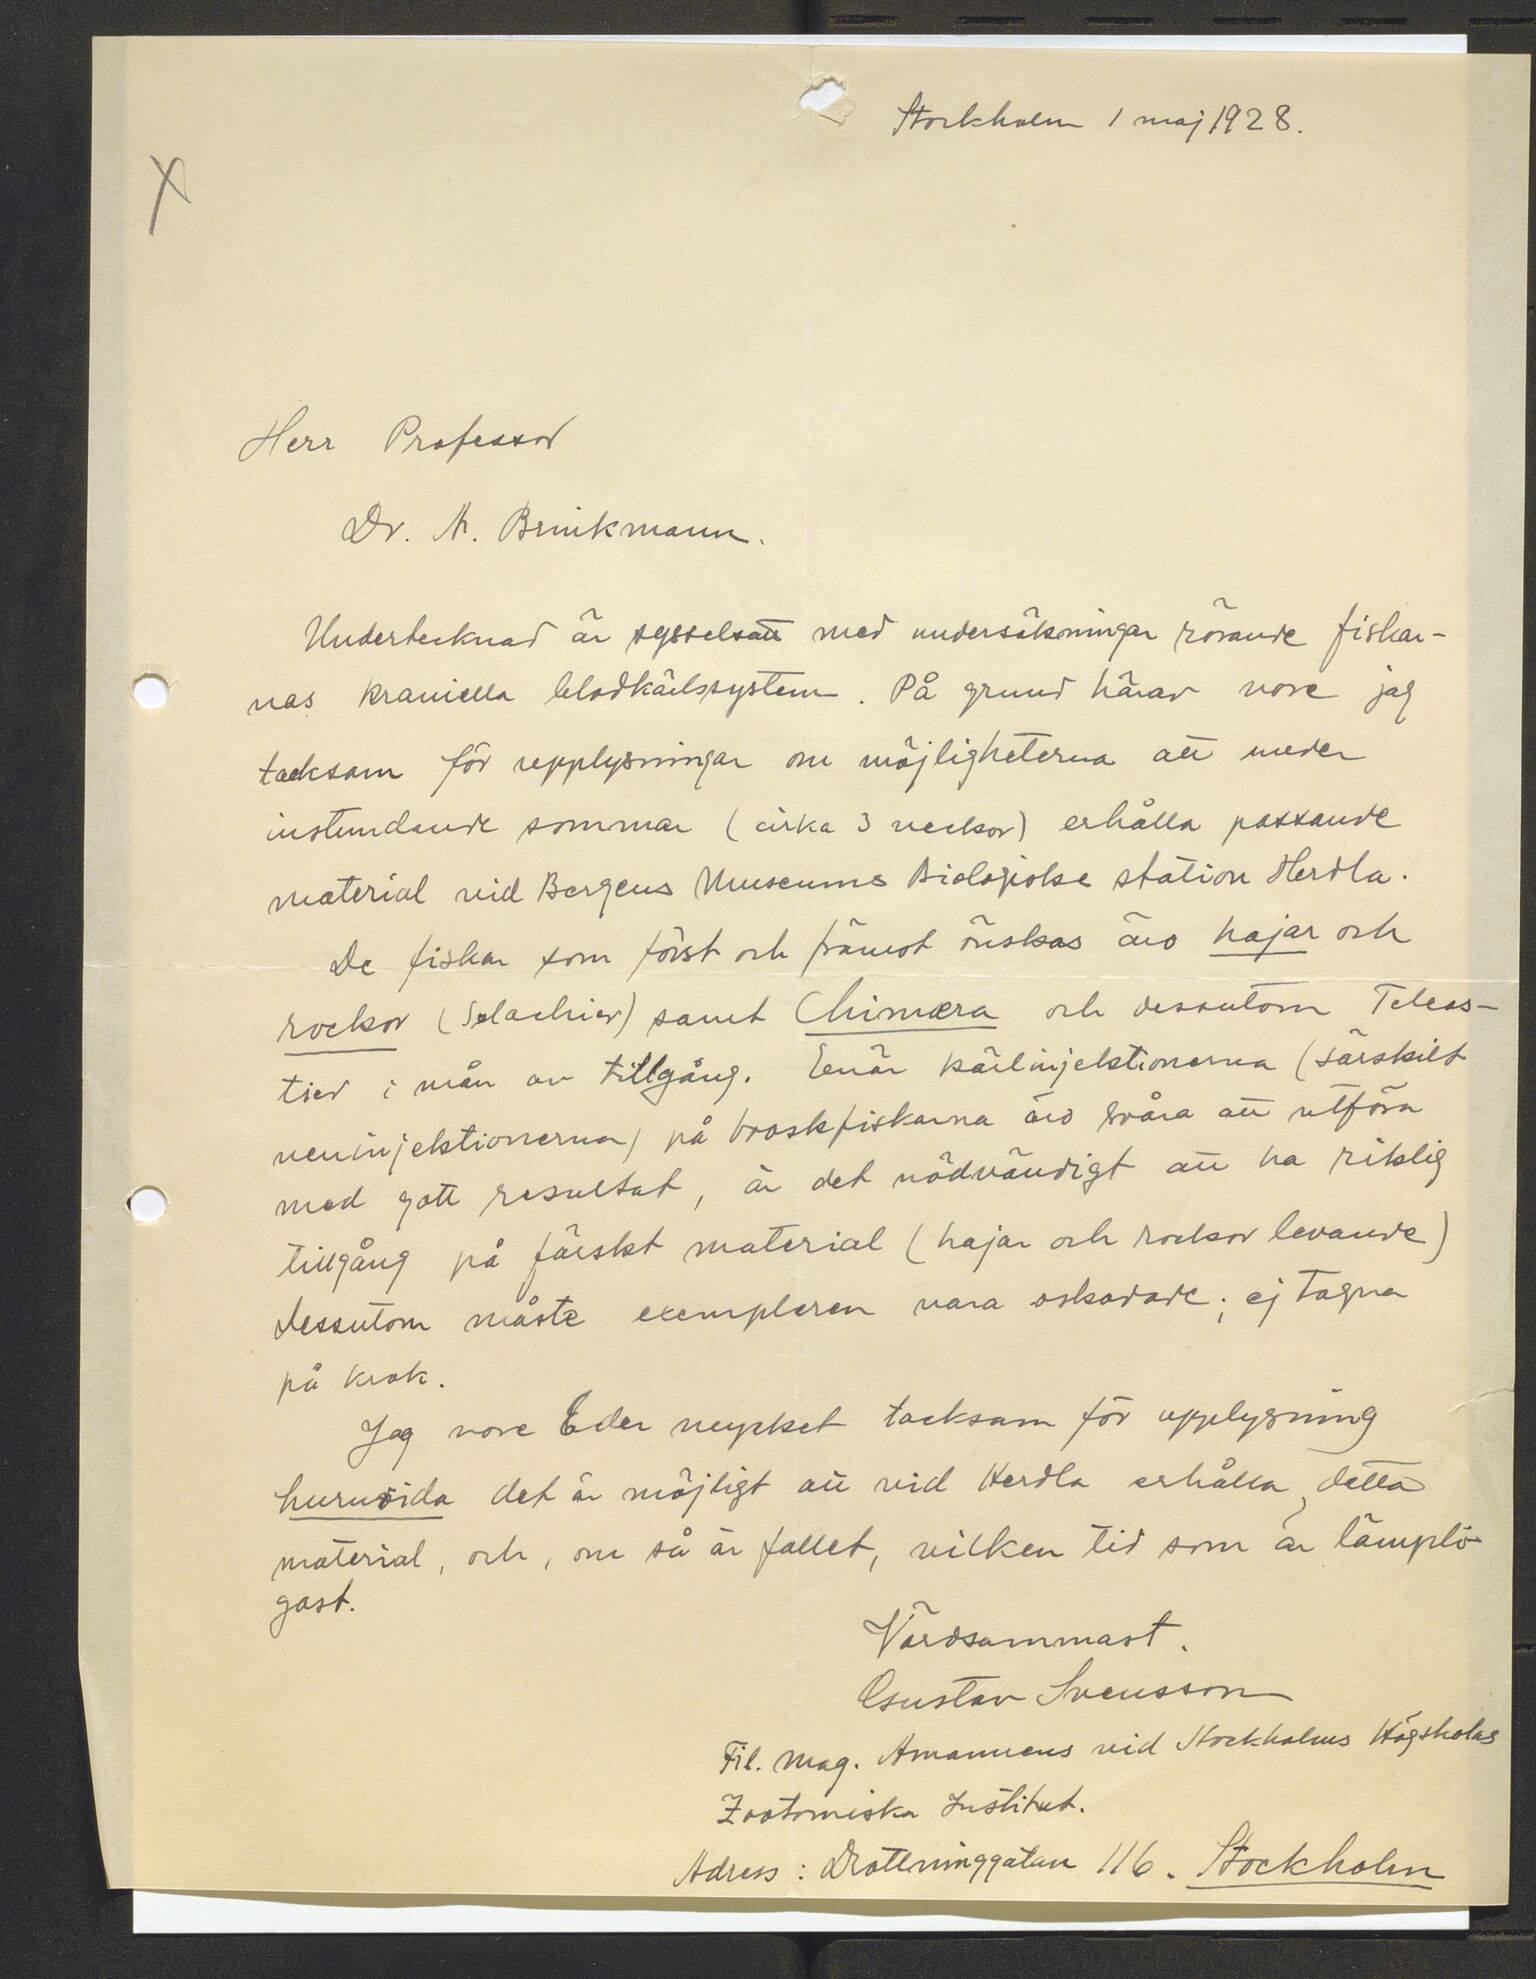 X
Stockholm 1 maj 1928.
Herr Professor
Dr. A. Brinkmann.
Undertecknad är sysselsatt med undersökningar rörande fiskar-
nas kraniella blodkärlssystem. På grund härav vore jag
tacksam för upplysningar om möjligheterna att under
instundande sommar (cirka 3 veckor) erhålla passande
material vid Bergens Museums Biologiske station Herdla.
De fiskar som först och främst önskas äro hajar och
rockor (Selachier) samt Chimæra och dessutom Teleos-
tier i mån av tillgång. Enär kärlinjektionerna (särskilt
veninjektionerna) på broskfiskarna äro svåra att utföra
med gott resultat, är det nödvändigt att ha riklig
tillgång på färskt material (hajar och rockor levande)
dessutom måste exemplaren vara oskadade; ej tagna
på krok.
Jag vore Eder mycket tacksam för upplysning
huruvida det är möjligt att vid Herdla erhålla detta
material, och, om så är fallet, vilken tid som är lämpli-
gast.
Vördsammast.
Gustav Svensson
Fil. mag. Amanuens vid Stockholms Högskolas
Zootomiska Institut.
Adress: Drottninggatan 116. Stockholm